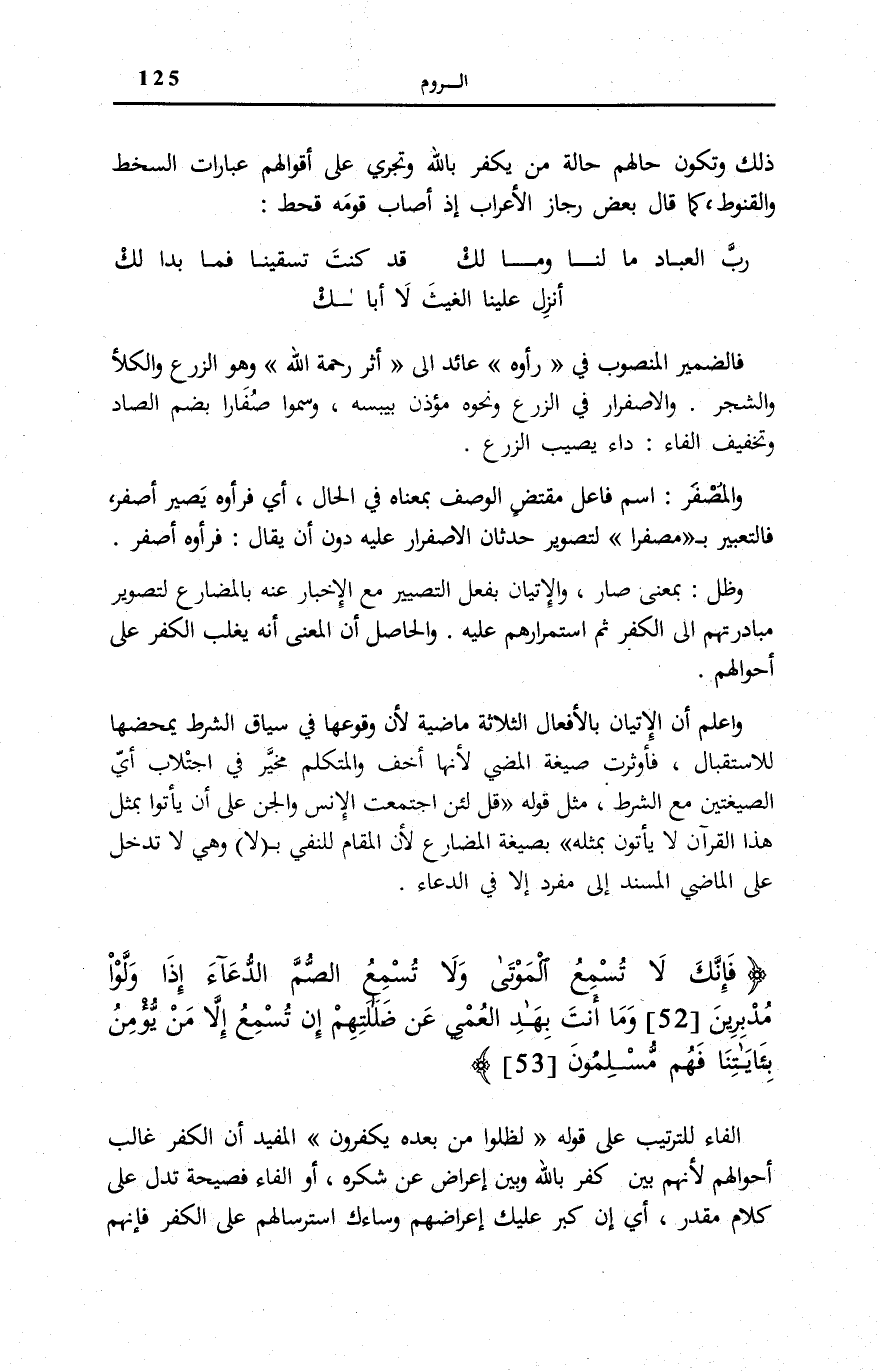 الـــروم 125
ذلك وتكون حالهم حالة من يكفر بالله وتجري على أقوالهم عبارات السخط
والقنوط، كما قال بعض رجاز الأعراب إذ أصاب قومَه قحط :
ربَّ العبـاد ما لنـــا ومـــا لكْ قد كنتَ تسقينـا فمـا بدا لكْ
أنزِل علينا الغيثَ لَا أبا لـكْ
فالضمير المنصوب في « رأوه » عائد الى « أثر رحمة الله » وهو الزرع والكلأ
والشجر . والاصفرار في الزرع ونحوه مؤذن بيبسه ، وسموا صُفَارا بضم الصاد
وتخفيف الفاء : داء يصيب الزرع .
والمُصْفَر : اسم فاعل مقتضٍ الوصف بمعناه في الحال ، أي فرأوه يَصير أصفر،
فالتعبير بـ«مصفرا » لتصوير حدثان الاصفرار عليه دون أن يقال : فرأوه أصفر .
وظل : بمعنى صار ، والإتيان بفعل التصيير مع الإخبار عنه بالمضارع لتصوير
مبادرتهم الى الكفر ثم استمرارهم عليه . والحاصل أن المعنى أنه يغلب الكفر على
أحوالهم .
واعلم أن الإتيان بالأفعال الثلاثة ماضية لأن وقوعها في سياق الشرط يمحضها
للاستقبال ، فأوثرت صيغة المضي لأنها أخف والمتكلم مخيَّر في اجتْلاب أيّ
الصيغتين مع الشرط ، مثل قوله «قل لئن اجتمعت الإنس والجن على أن يأتوا بمثل
هذا القرآن لا يأتون بمثله» بصيغة المضارع لأن المقام للنفي بـ(لا) وهي لا تدخل
على الماضي المسند إلى مفرد إلا في الدعاء .
﴿ فَإِنَّكَ لَا تُسْمِعُ ٱلْمَوْتَىٰ وَلَا تُسْمِعُ الصُّمَّ الدُّعَآءَ إِذَا وَلَّوْاْ
مُدْبِرِينَ [52] وَمَا أَنتَ بِهَـٰدِ العُمْيِ عَن ضَلَٰلَتِهِمْ إِن تُسْمِعُ إِلَّا مَنْ يُّؤْمِنُ
بِـَٔايَـٰتِنَا فَهُم مُّسْـلِمُونَ [53] ﴾
الفاء للترتيب على قوله « لظلوا من بعده يكفرون » المفيد أن الكفر غالب
أحوالهم لأنهم بين كفر بالله وبين إعراض عن شكره ، أو الفاء فصيحة تدل على
كلام مقدر ، أي إن كبر عليك إعراضهم وساءك استرسالهم على الكفر فإنهم